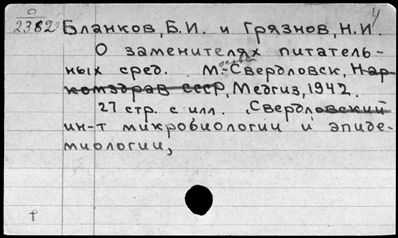 4
0
2382 Бланков, Б.И. и Грязнов, Н.И.
О заменителях питатель-
ных сред. М.-Свердловск, Нар-
комздрав СССР, Медгиз, 1942.
27 стр. с илл. (Свердловский
ин-т микробиологии и эпиде-
миологии,